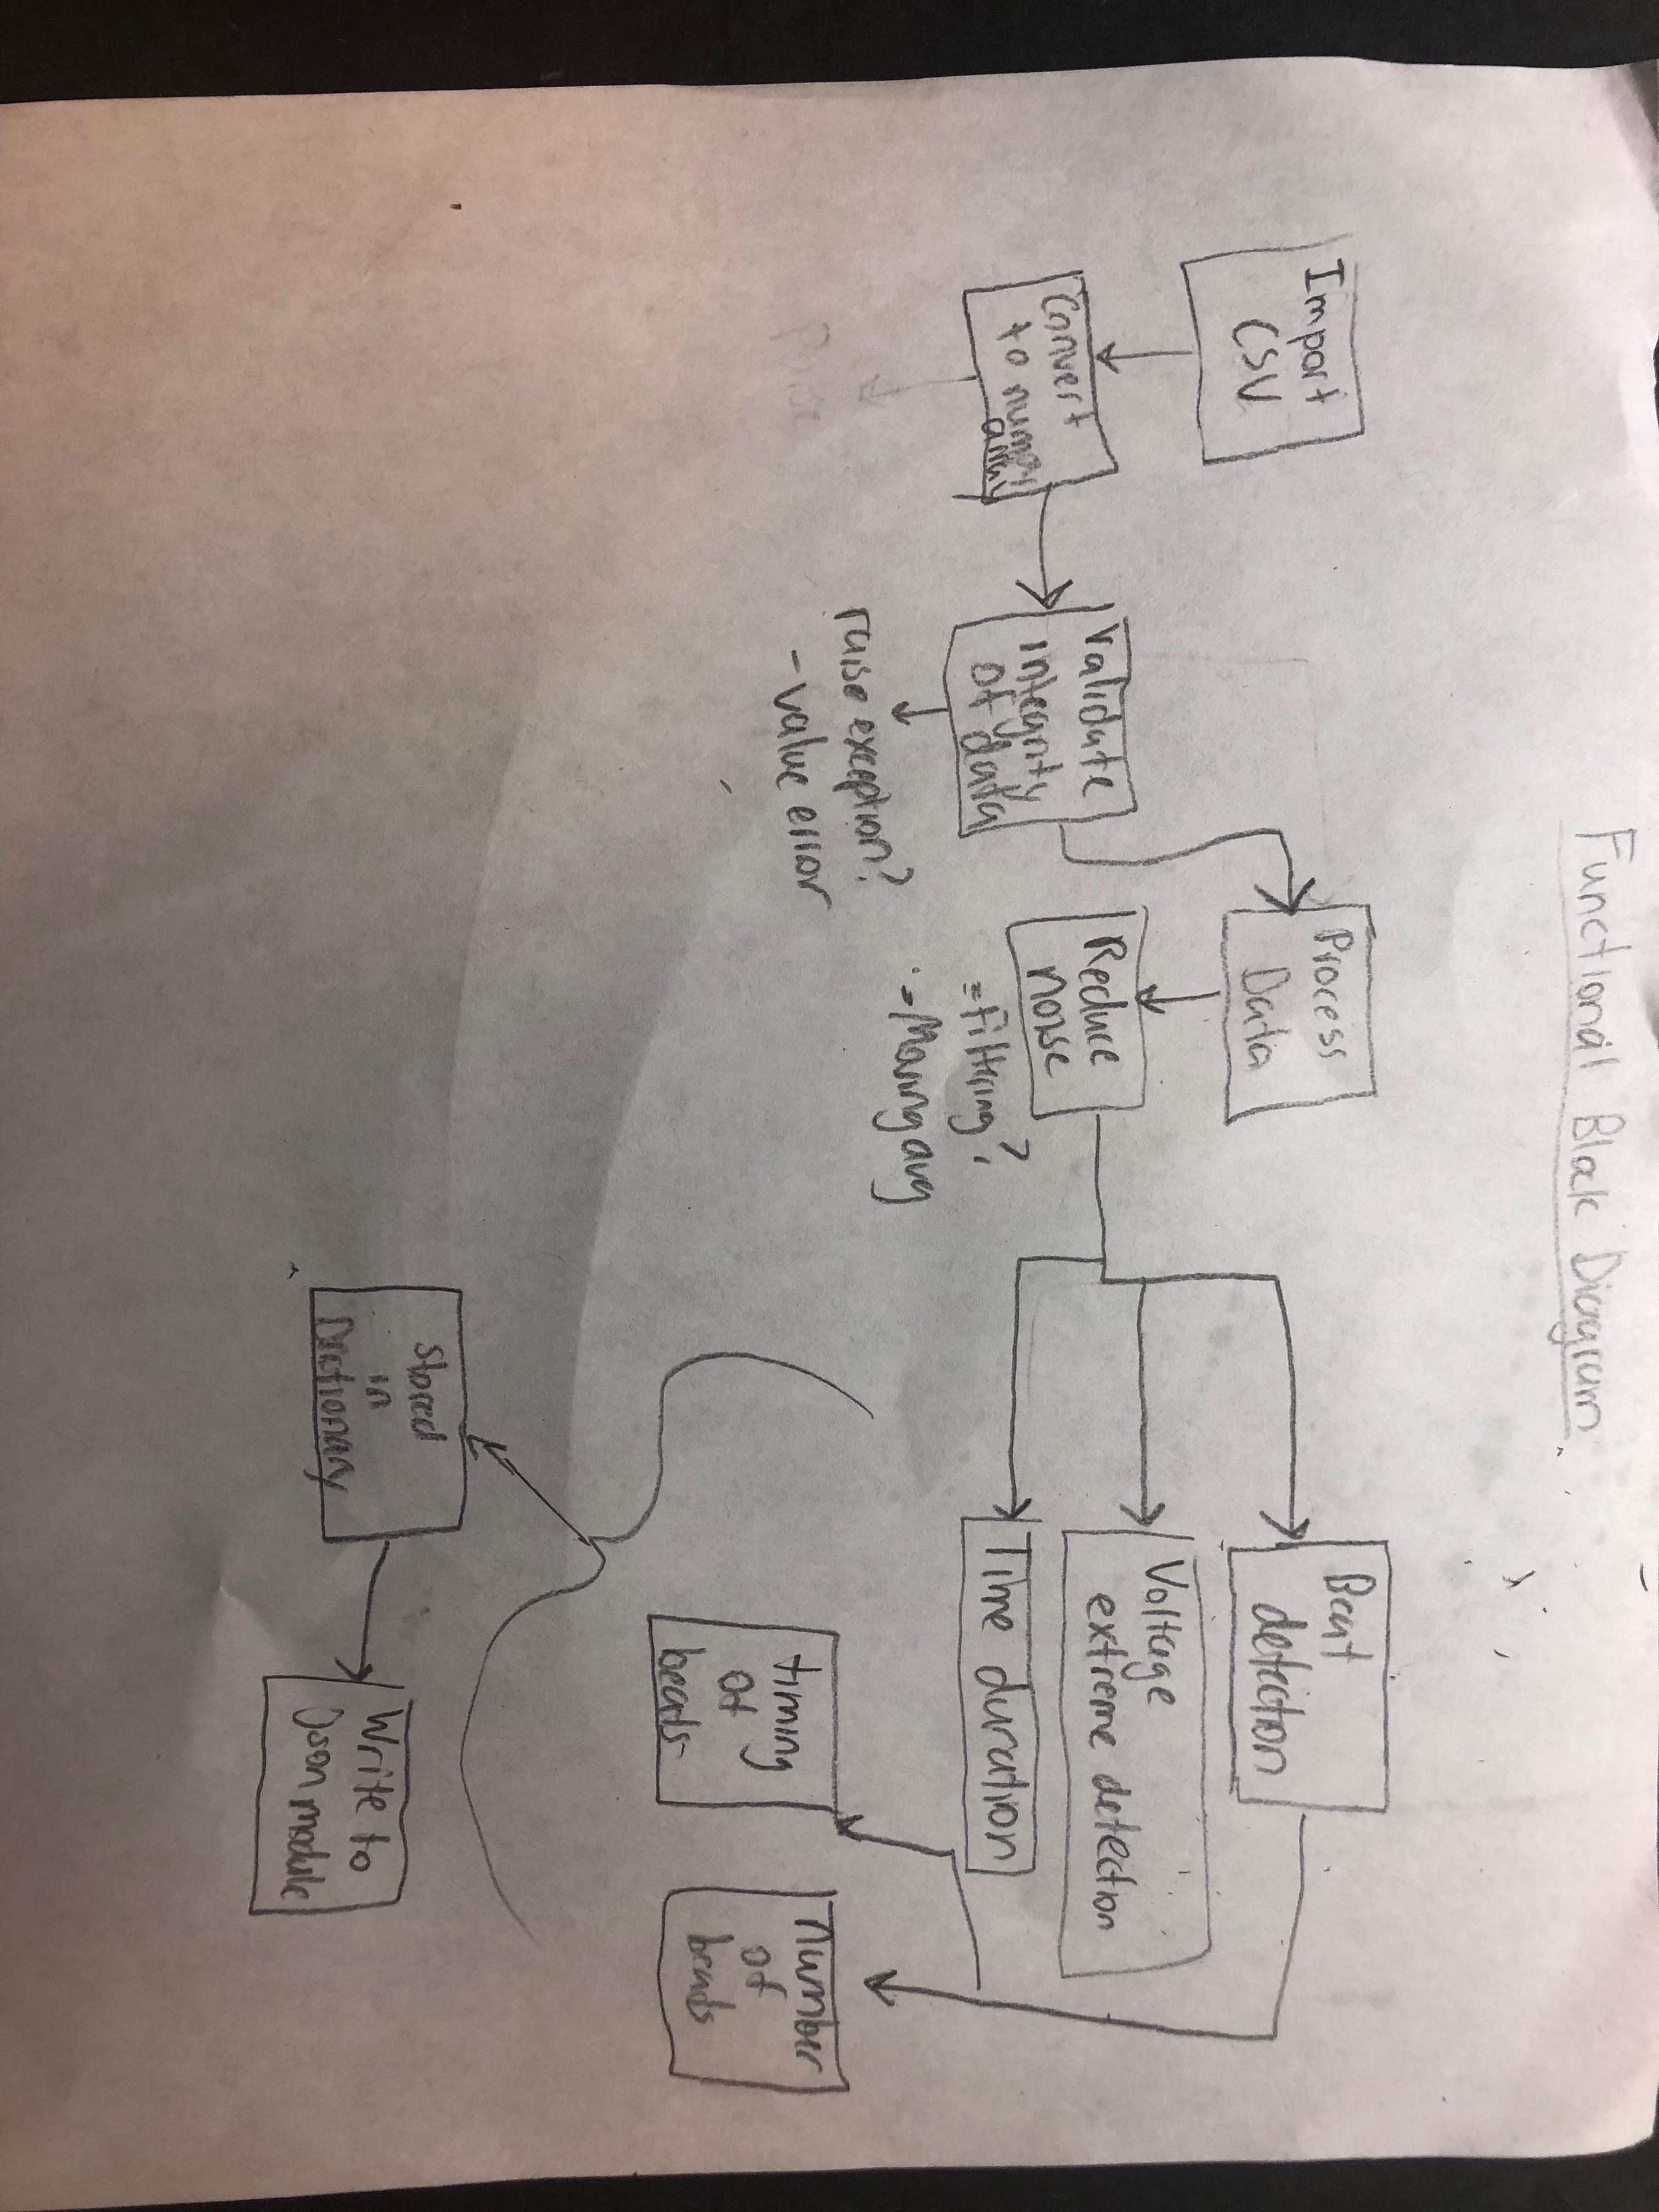 Functional Block Diagram
Import
CSV
Convert
to numpy
array
Validate
integrity
of data
raise exception?
- value error
Process
Data
Reduce
noise
= filtering?
= Moving avg
Beat
detection
Voltage
extreme detection
Time duration
timing
of
beats
Number
of
beats
stored
in
Dictionary
Write to
Json module